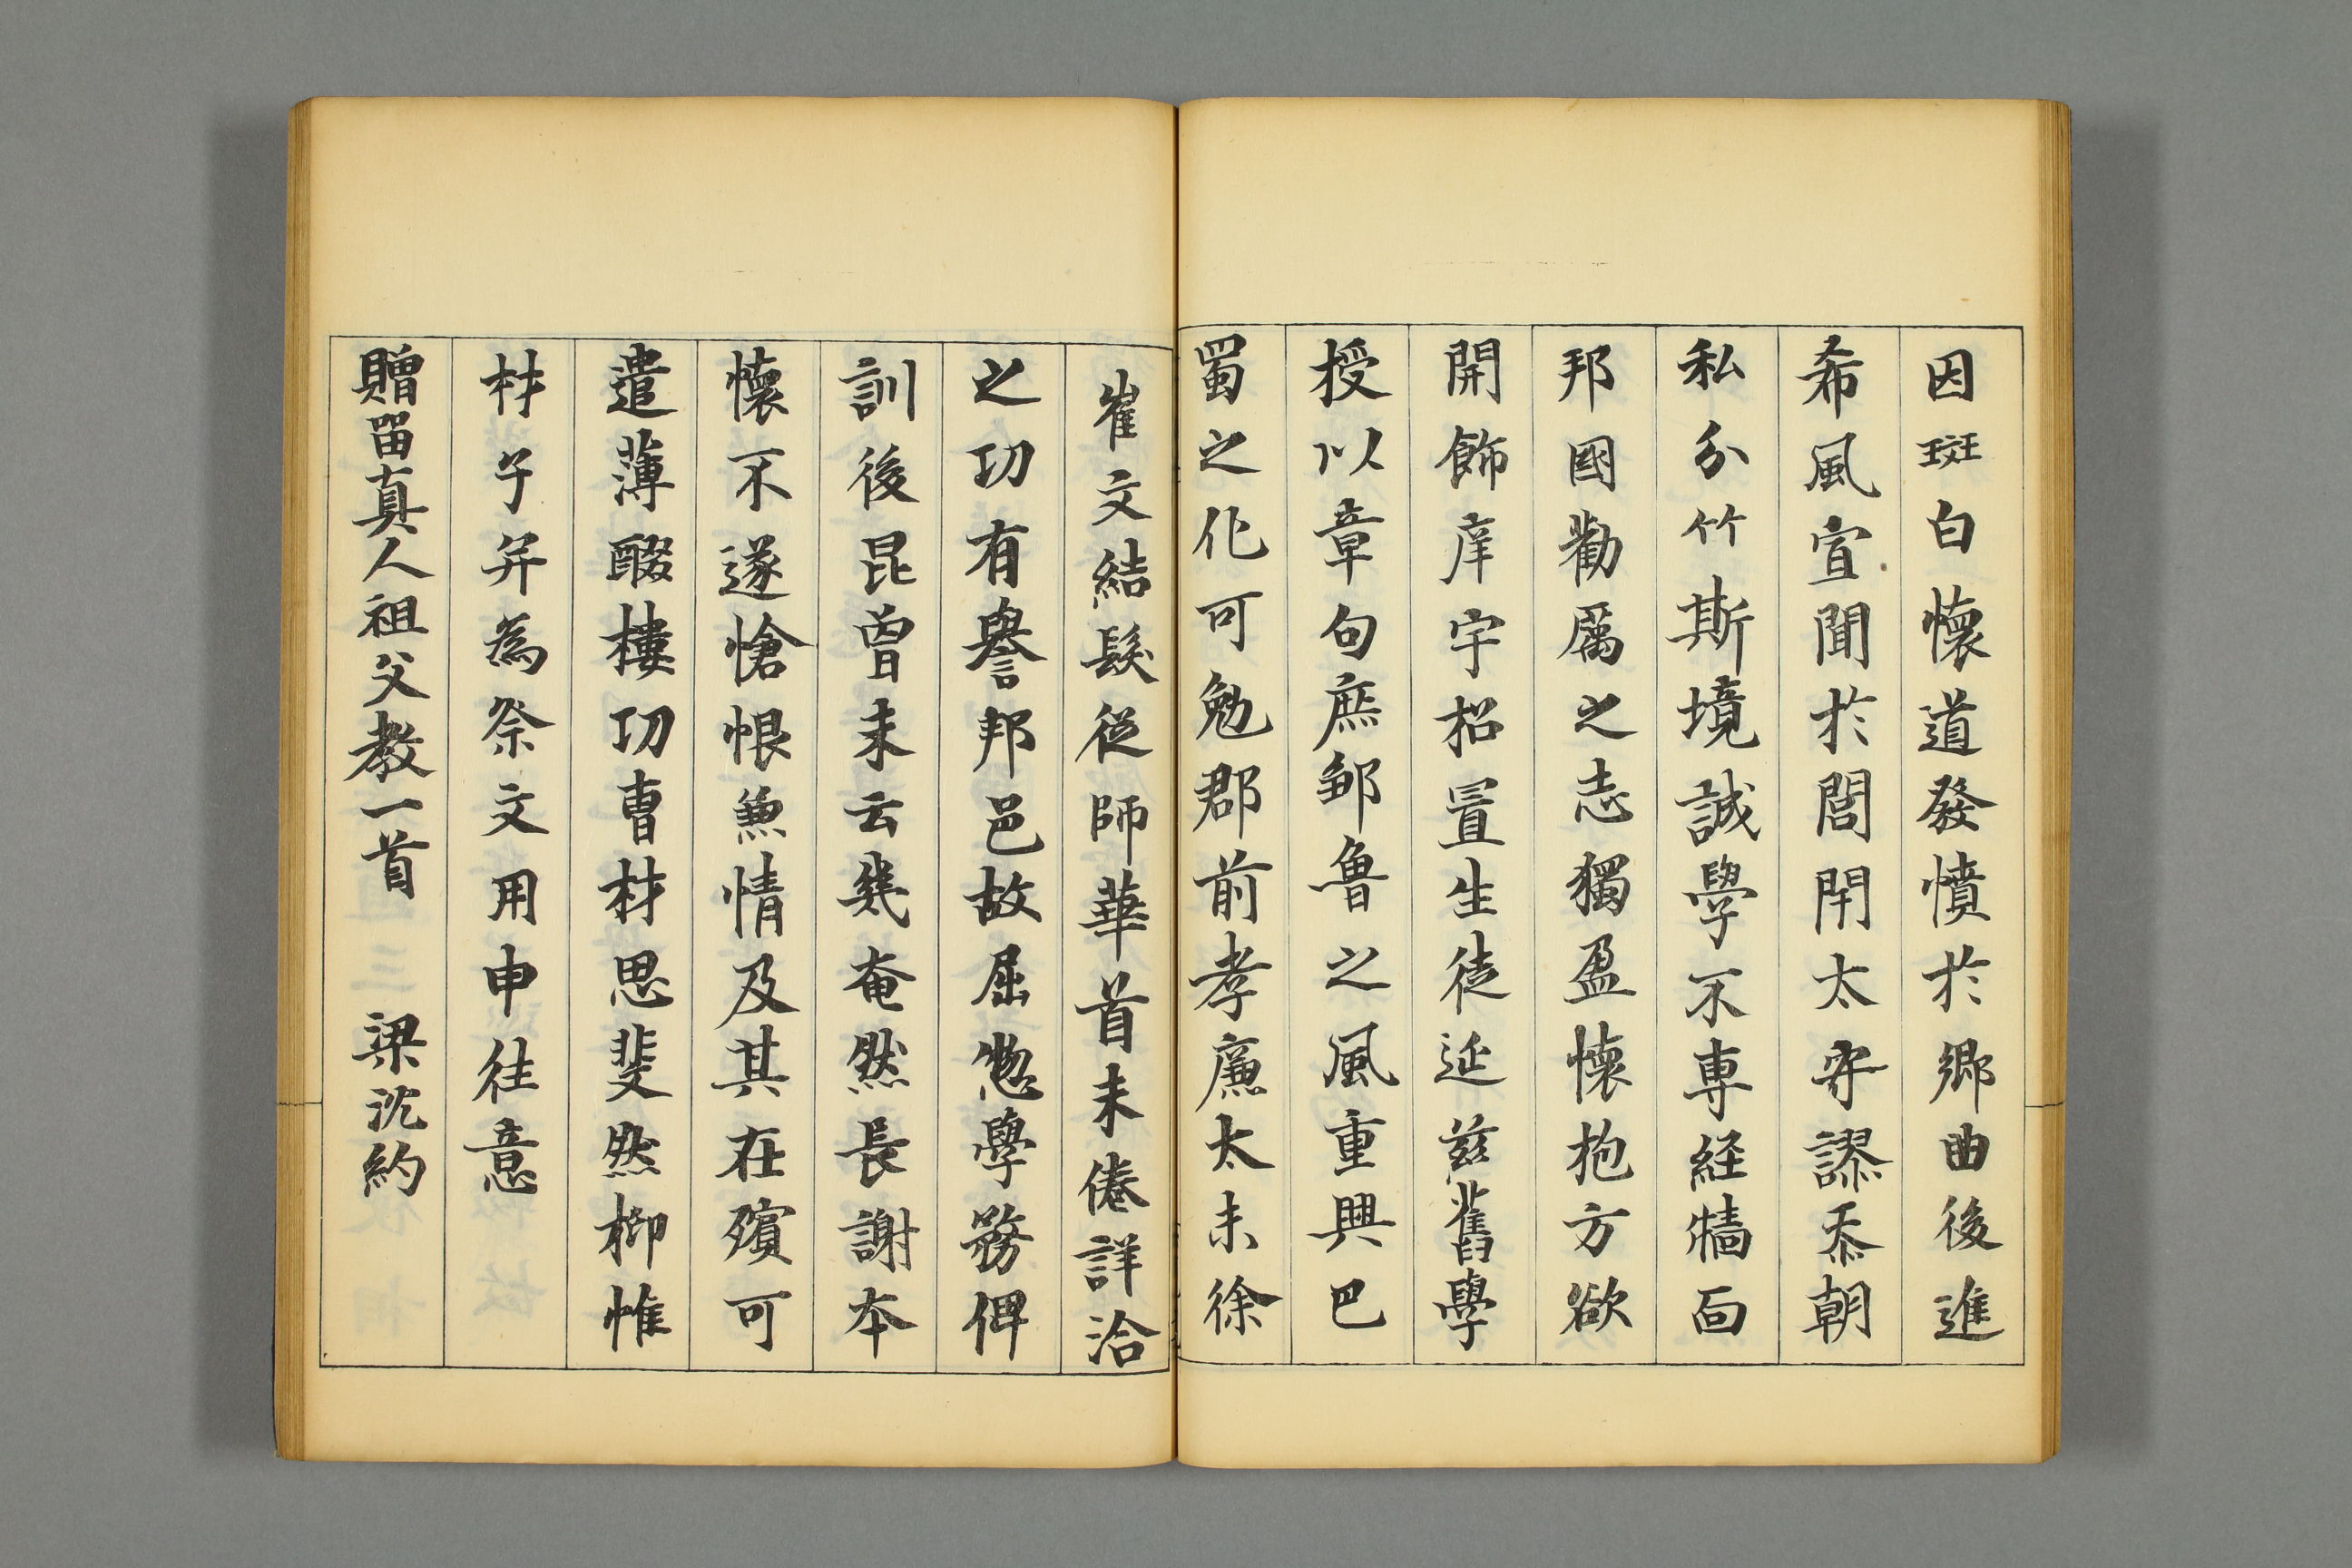 因斑白懷道發憤於鄉曲後進
希風宣聞於閭閈太守謬忝朝
私分竹斯境誠學不專経牆面
邦國勸厲之志獨盈懷抱方欲
開飾庠宇招置生徒延茲舊學
授以章句庶鄒魯之風重興巴
蜀之化可勉郡前孝廉太末徐
崔文結髮從師華首未倦詳洽
之功有譽邦邑故屈惣學務俾
訓後昆曾未云幾奄然長謝本
懷不遂愴恨兼情及其在殯可
遣薄醊樓功曹材思斐然柳惟
材子并為祭文用申往意
贈留真人祖父教一首　梁沈約